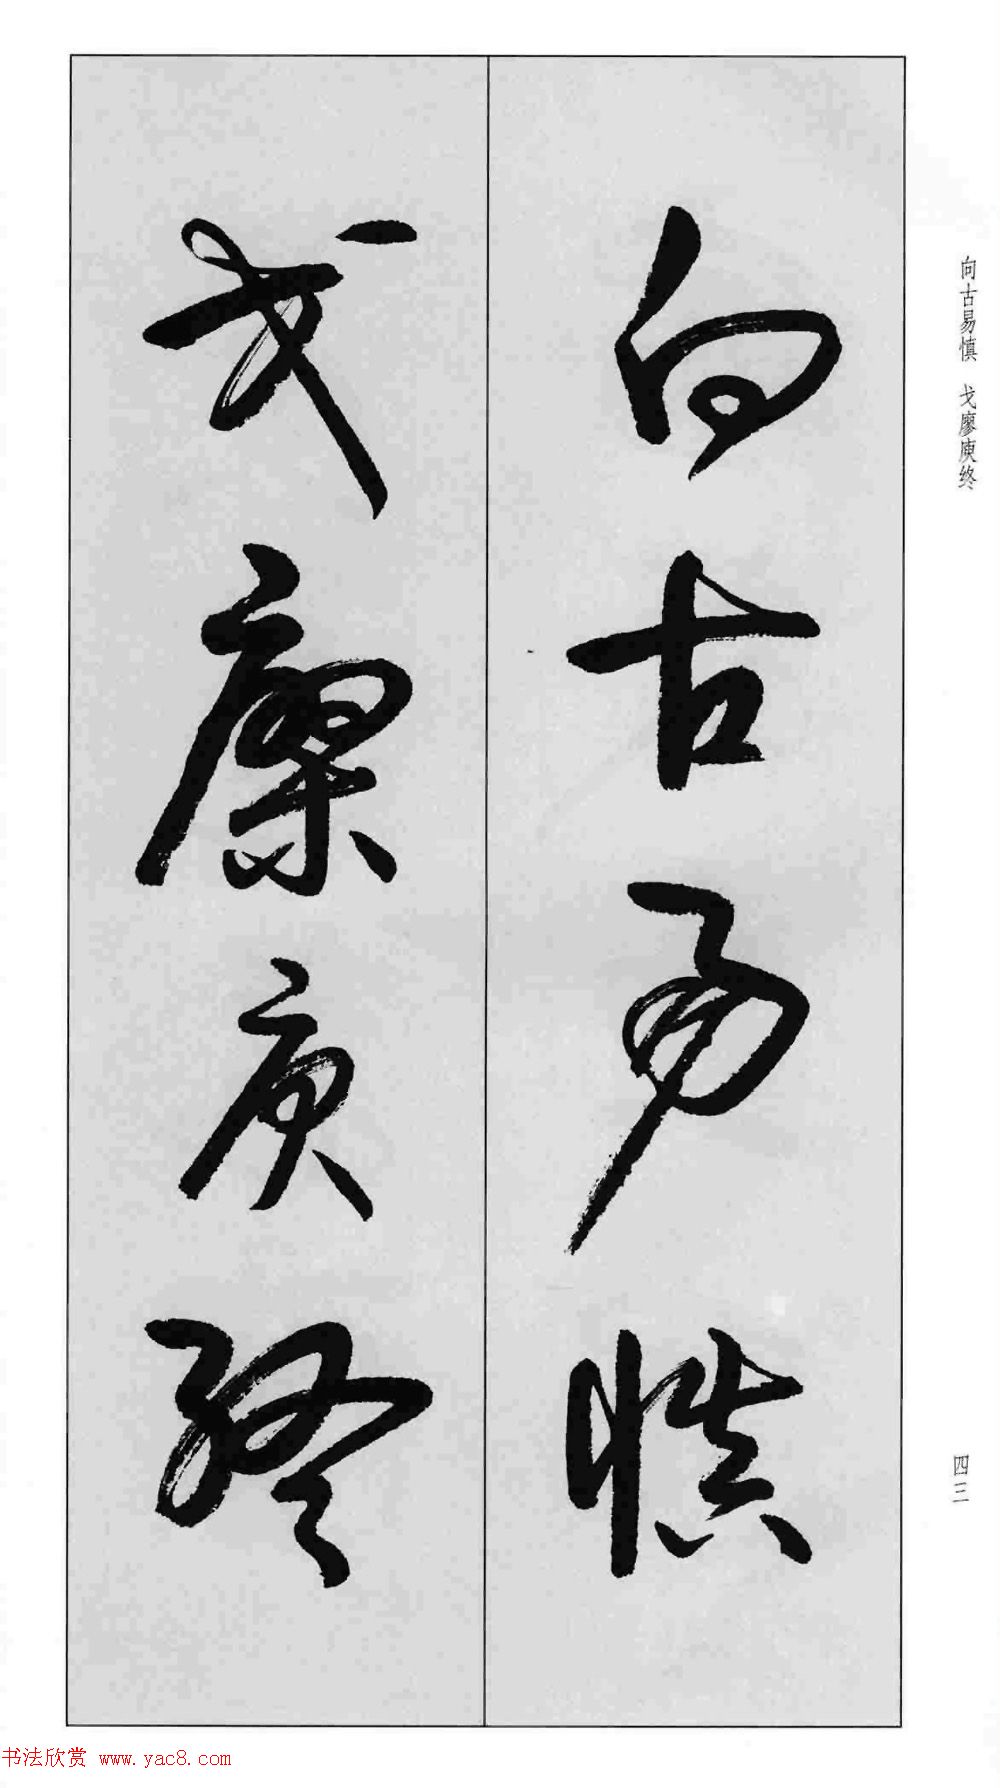 向古易慎
戈廖庾终
向古易慎 戈廖庾终
四三
书法欣赏 www.yac8.com